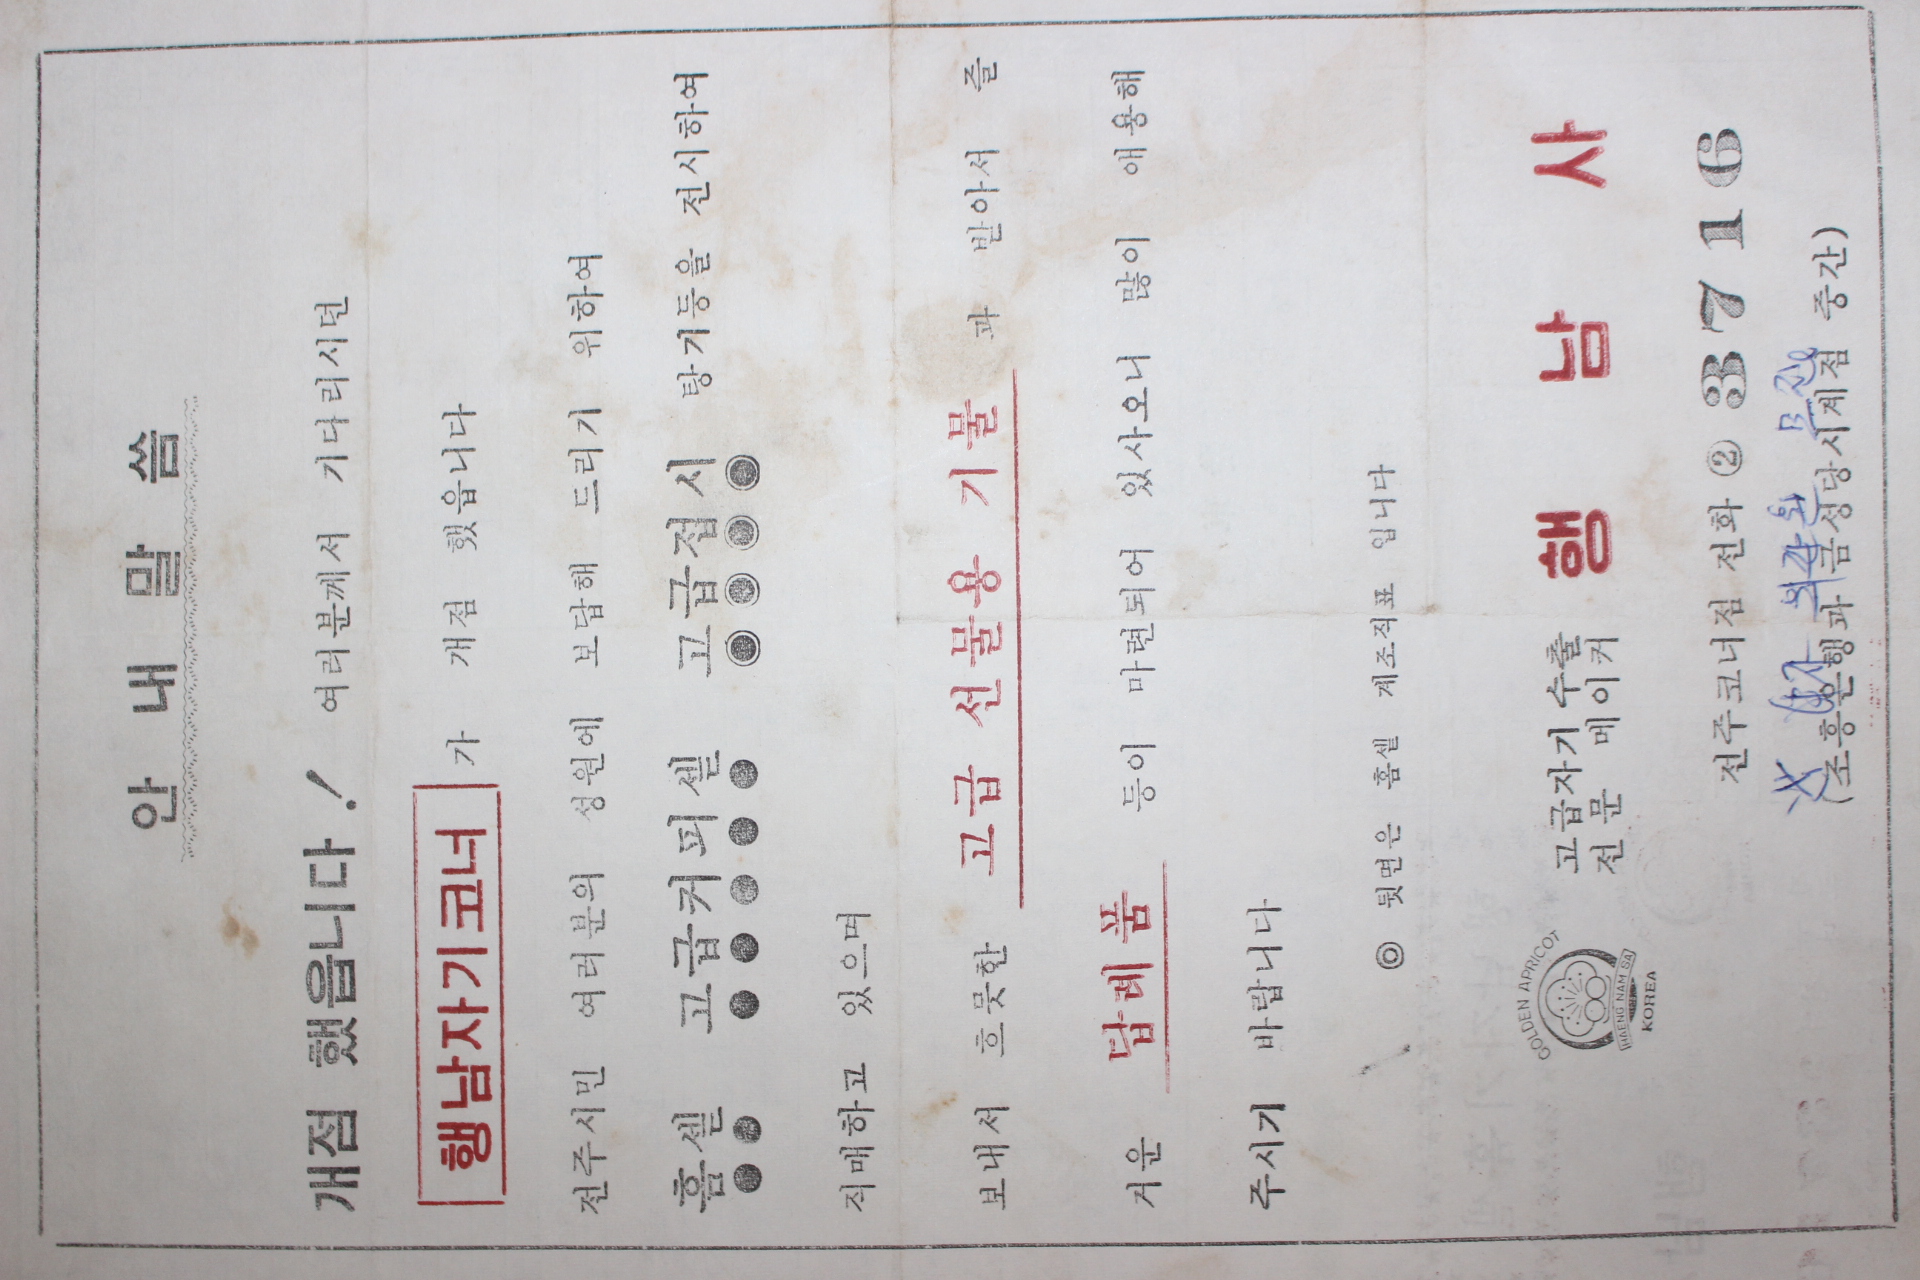 안내말씀
개점 했읍니다! 여러분께서 기다리시던
행남자기코너 가 개점 했읍니다
전주시민 여러분의 성원에 보답해 드리기 위하여
홈셑 고급커피셑 고급접시 탕기등을 전시하여
직매하고 있으며
보내서 흐믓한 고급 선물용 기물 과 받아서 즐
거운 답례품 등이 마련되어 있사오니 많이 애용해
주시기 바랍니다
◎ 뒷면은 홈셑 계조직표 입니다
GOLDEN APRICOT
HAENG NAM SA
KOREA
고급자기 수출
전문 메이커
행남사
전주코너점 전화 ② 3716
(조흥은행과 금성당시계점 중간)